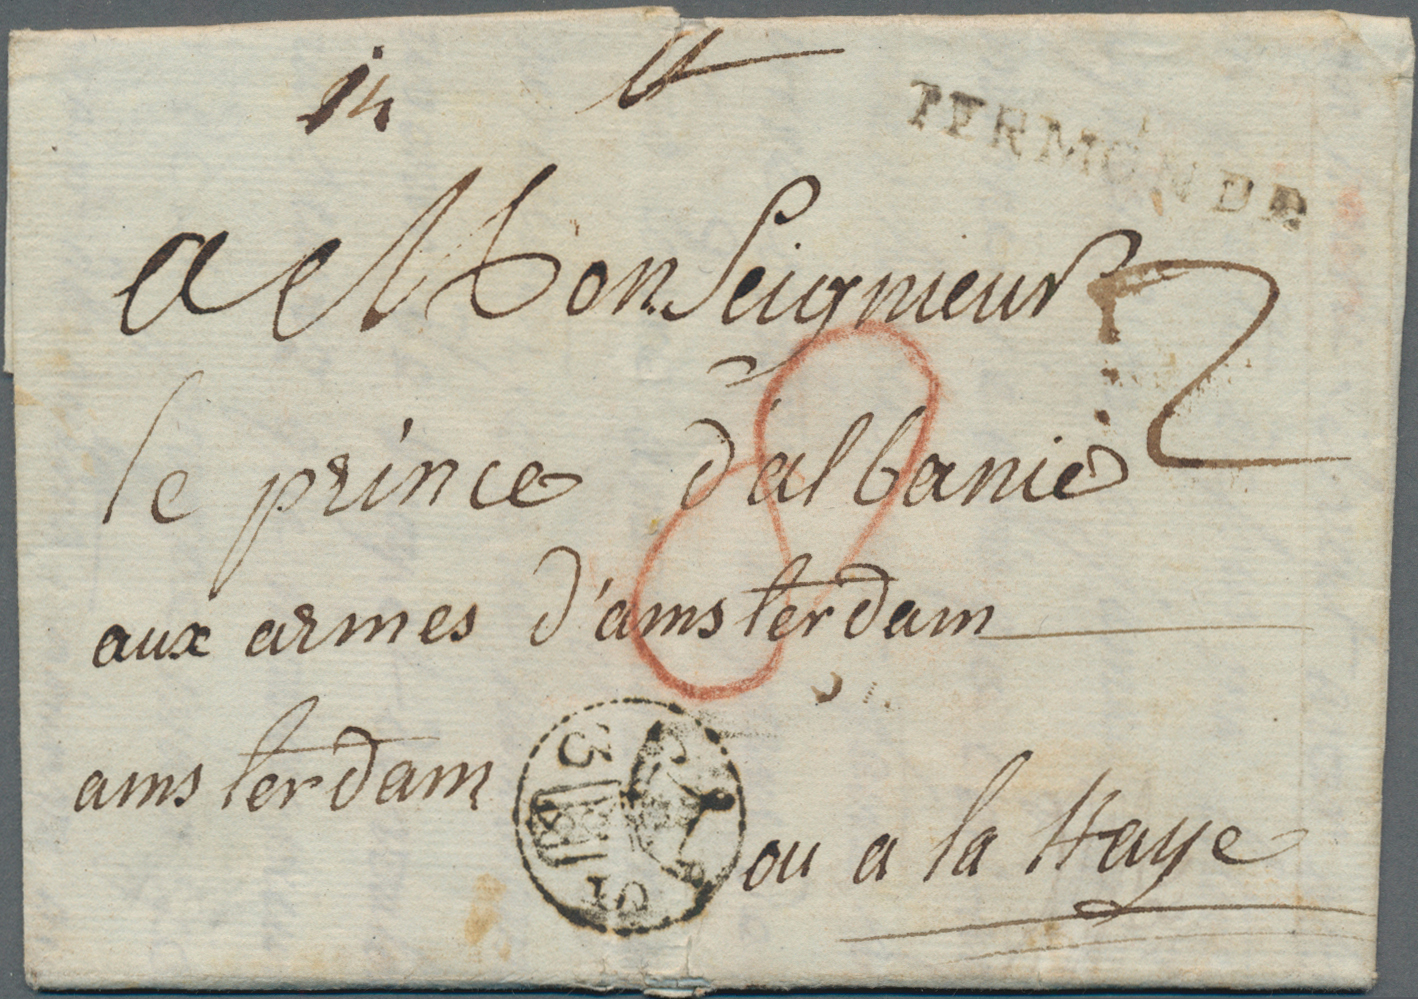 14
TERMONDE
a Monseigneur
le prince d'albanie
aux armes d'amsterdam
amsterdam
ou a la Haye
8
2
3